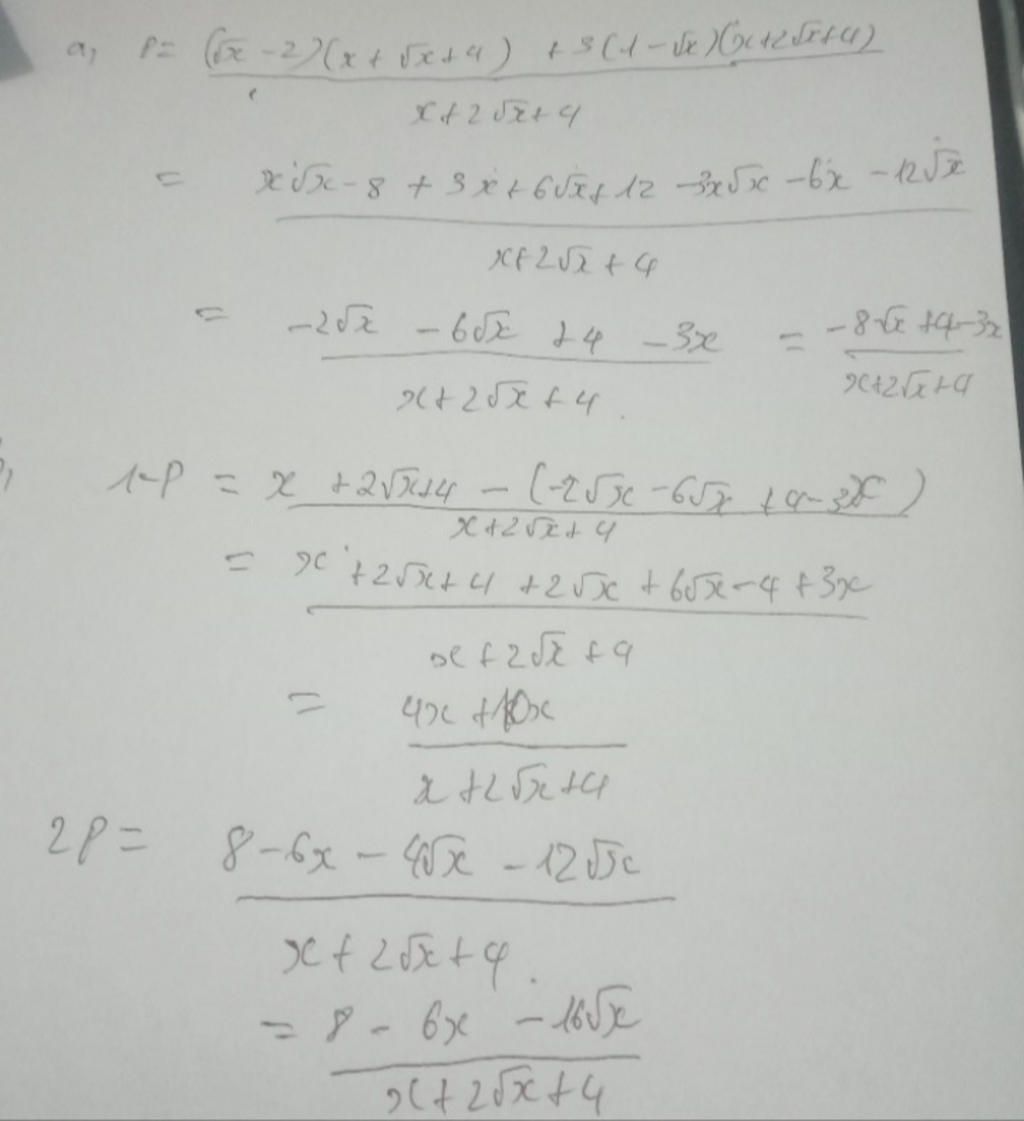 a, P = (√x - 2)(x + √x + 4) + 3(1 - √x)(x + 2√x + 4)
x + 2√x + 4
= x√x - 8 + 3x + 6√x + 12 - 3x√x - 6x - 12√x
x + 2√x + 4
= -2√x - 6√x + 4 - 3x = -8√x + 4 - 3x
x + 2√x + 4 x + 2√x + 4
1 - P = x + 2√x + 4 - (-2√x - 6√x + 4 - 3x)
x + 2√x + 4
= x + 2√x + 4 + 2√x + 6√x - 4 + 3x
x + 2√x + 4
= 4x + 10x
x + 2√x + 4
2P = 8 - 6x - 4√x - 12√x
x + 2√x + 4
= 8 - 6x - 16√x
x + 2√x + 4